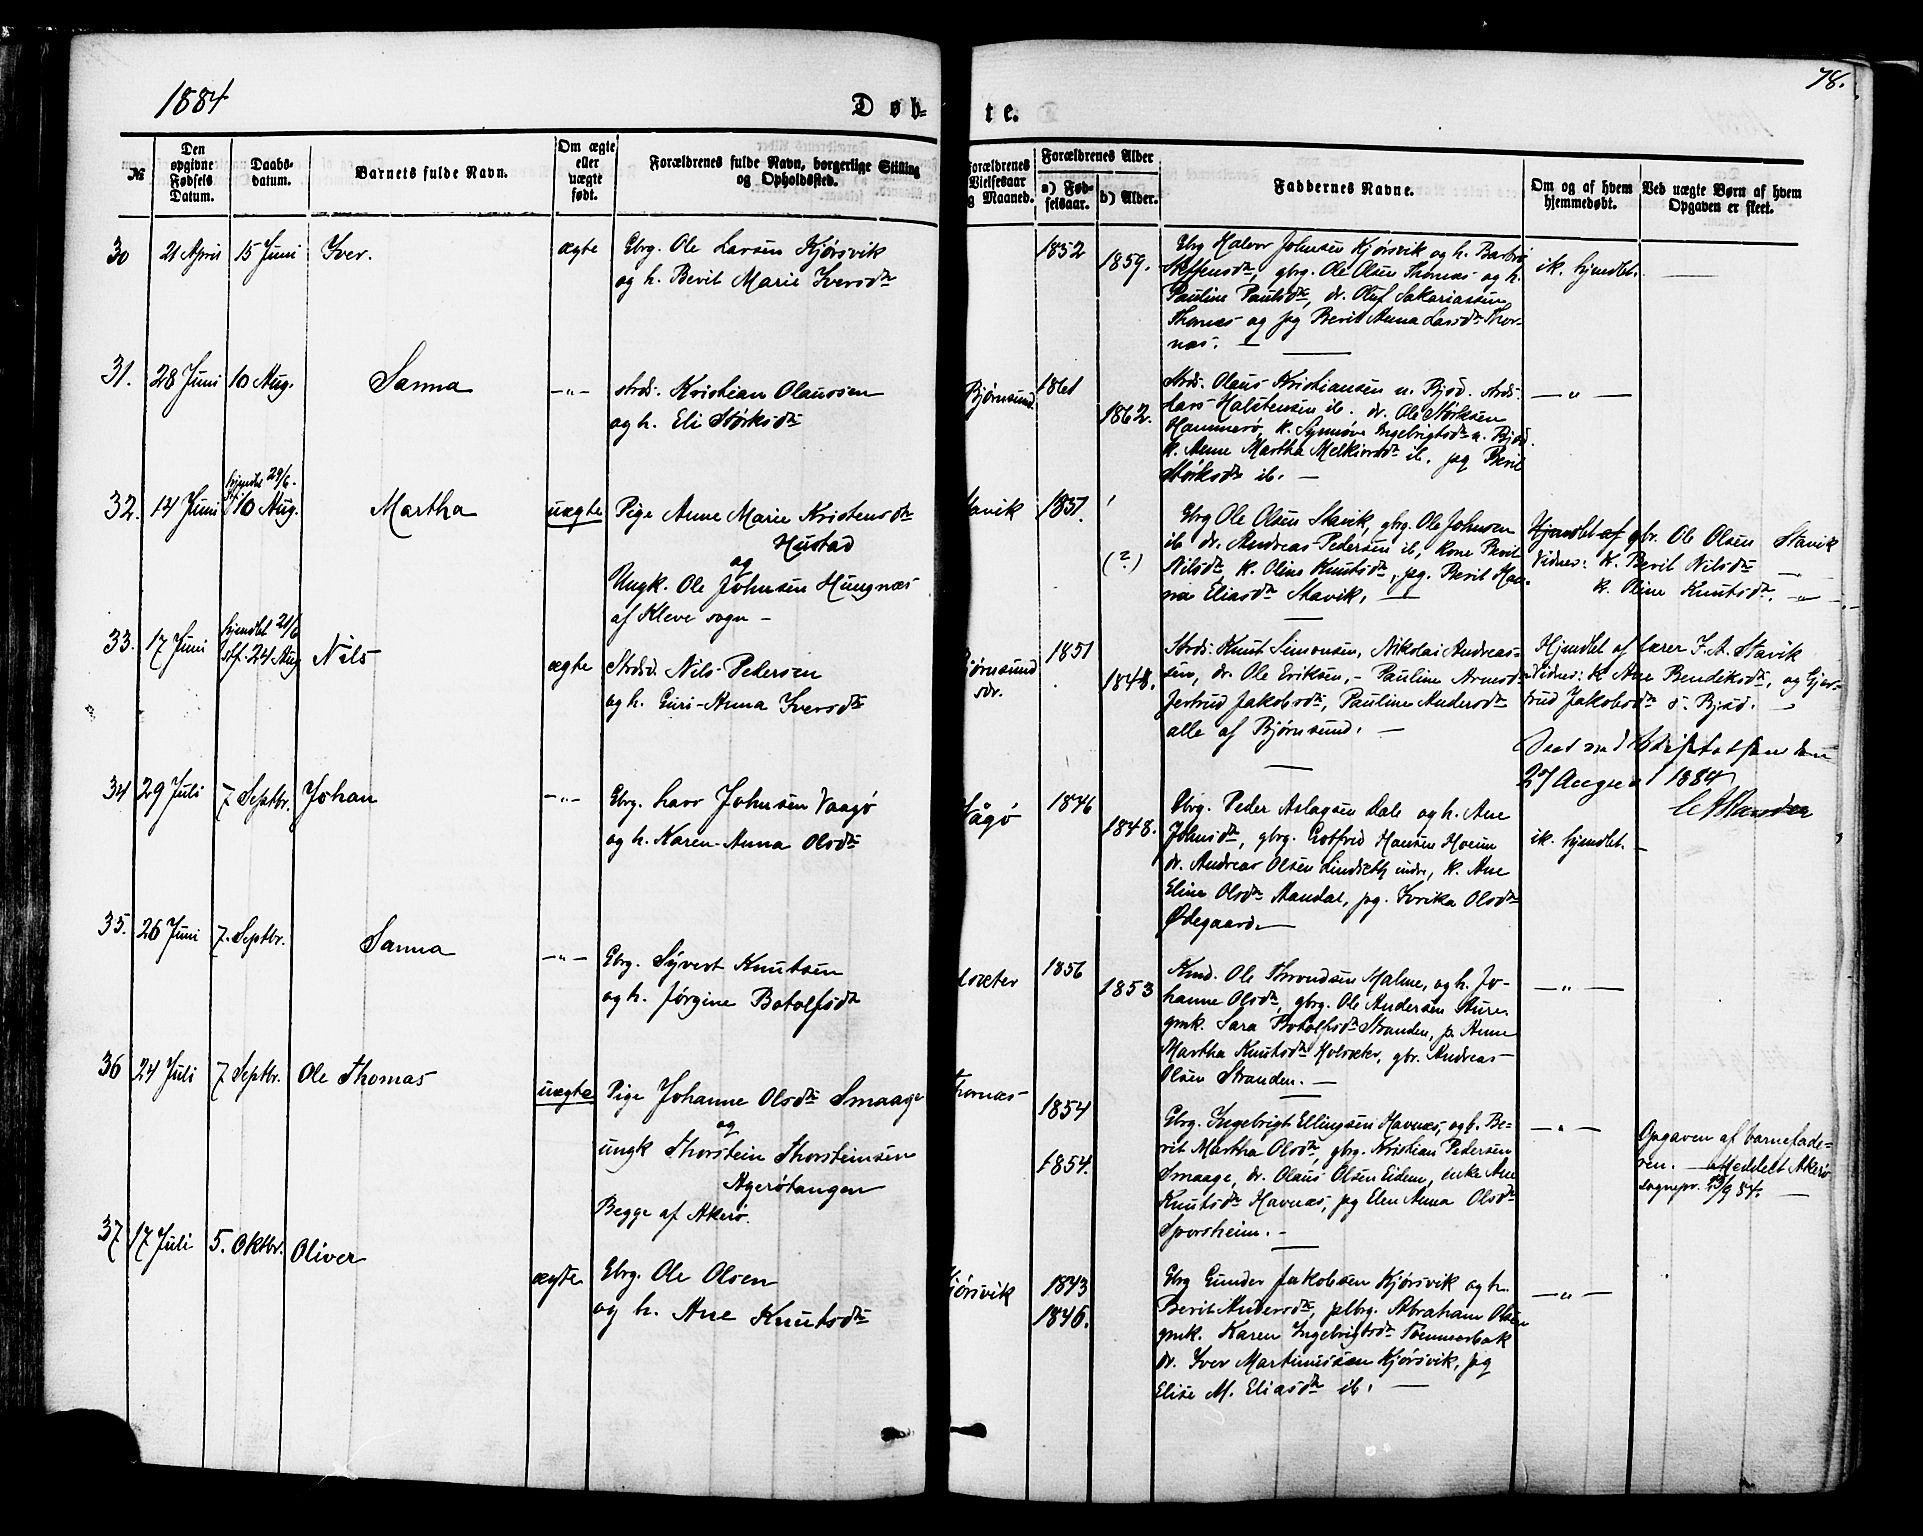 1884
Døb-
te.
78.
№
Den opgivne Fødsels Datum.
Daabs-datum.
Barnets fulde Navn.
Om ægte eller uægte født.
Forældrenes fulde Navn, borgerlige Stilling og Opholdssted.
Forældrenes Vielsesaar og Maaned.
Forældrenes Alder
a) Fødselsaar.
b) Alder.
Faddernes Navne.
Om og af hvem hjemmedøbt.
Ved uægte Børn af hvem Opgaven er skeet.
30 21 April 15 Juni Iver. ægte Gbrg. Ole Larsen Kjørsvik
og h. Berit Marie Iversdtr
1852
1859.
Gbrg Halvor Johnsen Kjørsvik og h. Barbro
Steffensdtr, gbrg. Ole Olsen Thornæs og h.
Pauline Paulsdtr, dr. Oluf Sakariassen
Thornæs og pg Berit Anna Larsdtr Thor-
næs. —
ik. hjemdbt. —
31. 28 Juni 10 Aug. Sanna —"— strds. Kristian Olaussen
og h. Eli Størksdtr
Bjørnsund 1861
1862.
Strds. Olaus Kristiansen n. Bjsd. strds.
Lars Halstensen ib. dr. Ole Størksen
Hammerø, k. Synnøve Ingebrigtsdtr n. Bjsd.
k. Anne Martha Melkiorsdtr ib. pg Berit
Størksdtr ib. —
—"—
32. 14 Juni hjemdbt 29/6. 10 Aug. Martha uægte Pige Anne Marie Kristensdtr
Hustad
og
Ungk. Ole Johnsen Hungnæs
af Kleve sogn —
Stavik 1857.
(?)
Gbrg Ole Olsen Stavik, gbrg. Ole Johnsen
ib dr. Andreas Pedersen ib, kone Berit
Nilsdtr, k. Oline Knutsdtr, pg. Berit Han-
na Eliasdtr Stavik. —
Hjemdbt af gbr. Ole Olsen Stavik
Vidner: K. Berit Nilsdtr —
k. Oline Knutsdtr. —"—
33. 17 Juni hjemdbt 21/6 stf. 24 Aug Nils ægte Strdsd. Nils Pedersen
og h. Guri-Anna Iversdtr
Bjørnsund
sdr.
1851
1848.
Strds: Knut Simonsen, Nikolai Andreas-
sen, dr. Ole Eriksen, - Pauline Arnesdtr
Jertrud Jakobsdtr, Pauline Andersdtr
alle af Bjørnsund. —
Hjemdbt af lærer F. A. Stavik
Vidner: K Ane Bendiksdtr, og Gjer-
trud Jakobsdtr s. Bjsd. —
1884
34 29 Juli 7 Septbr. Johan —"— Gbrg. Lars Johnsen Vaagø
og h. Karen-Anna Olsdtr
Vågø 1846
1848.
Gbrg. Peder Aslagsen Dale og h. Ane
Johnsdtr, gbrg. Gotfred Hansen Hoem
dr. Andreas Olsen Lindsæth indre, k. Ane
Eline Olsdtr Mandal, pg. Iverika Olsdtr
Ødegaard —
ik. hjemdbt. —
35. 26 Juni 7. Septbr. Sanna —"— Gbrg. Syvert Knutsen
og h. Jørgine Botolfsdtr
1856
1853
Kmd. Ole Throndsen Malme, og h. Jo-
hanne Olsdtr, gbrg. Ole Andersen Aure
gmk. Sara Botolfsdtr Stranden, p. Anne
Martha Knutsdtr Holsæter, gbr. Andreas
Olsen Stranden. —
—"—
36 24 Juli 7 Septbr. Ole Thomas uægte Pige Johanne Olsdtr Smaage
og
ungk Thorstein Thorsteinsen
Agerøtangen
Begge af Akerø.
Thornæs 1854
1854.
Gbrg. Ingebrigt Ellingsen Havnæs, og h. Be-
rit Martha Olsdtr, gbrg. Kristian Pedersen
Smaage, dr. Olaus Olsen Eidem, enke Ane
Knutsdtr Havnæs, pg Elen Anna Olsdtr
Sporsheim. —
—"—
Opgaven af barnefade-
ren. — Meddelt Akerø
sognepr. 23/9 84. —
37 17 Juli 5. Oktbr. Oliver ægte Gbrg. Ole Olsen
og h. Ane Knutsdtr
Kjørsvik 1843
1846.
Gbrg Gunder Jakobsen Kjørsvik og h.
Berit Andersdtr, plbrg. Abraham Olsen
gmk. Karen Ingebrigtsdtr Tommerbak
dr. Iver Martinussen Kjørsvik, pg
Elise M. Eliasdtr ib. —
—"—